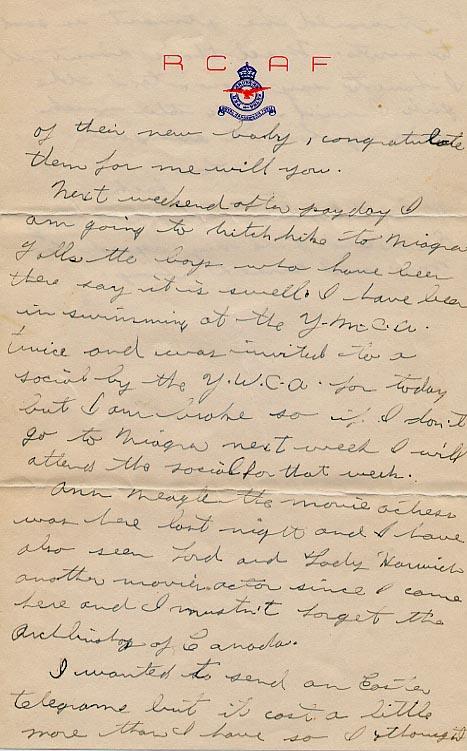 R C A F
of their new baby, congratulate
them for me will you.
Next weekend after payday I
am going to hitchhike to Niagra
Falls the boys who have been
there say it is swell. I have been
in swimming at the Y.M.C.A.
twice and was invited to a
social by the Y.W.C.A. for today
but I am broke so if I don't
go to Niagra next week I will
attend the social for that week.
Ann Neagle the movie actress
was here last night and I have
also seen Lord and Lady Harwich
another movie actor since I came
here and I mustn't forget the
Archbishop of Canada.
I wanted to send an Easter
telegrame but it cost a little
more than I have so I thought